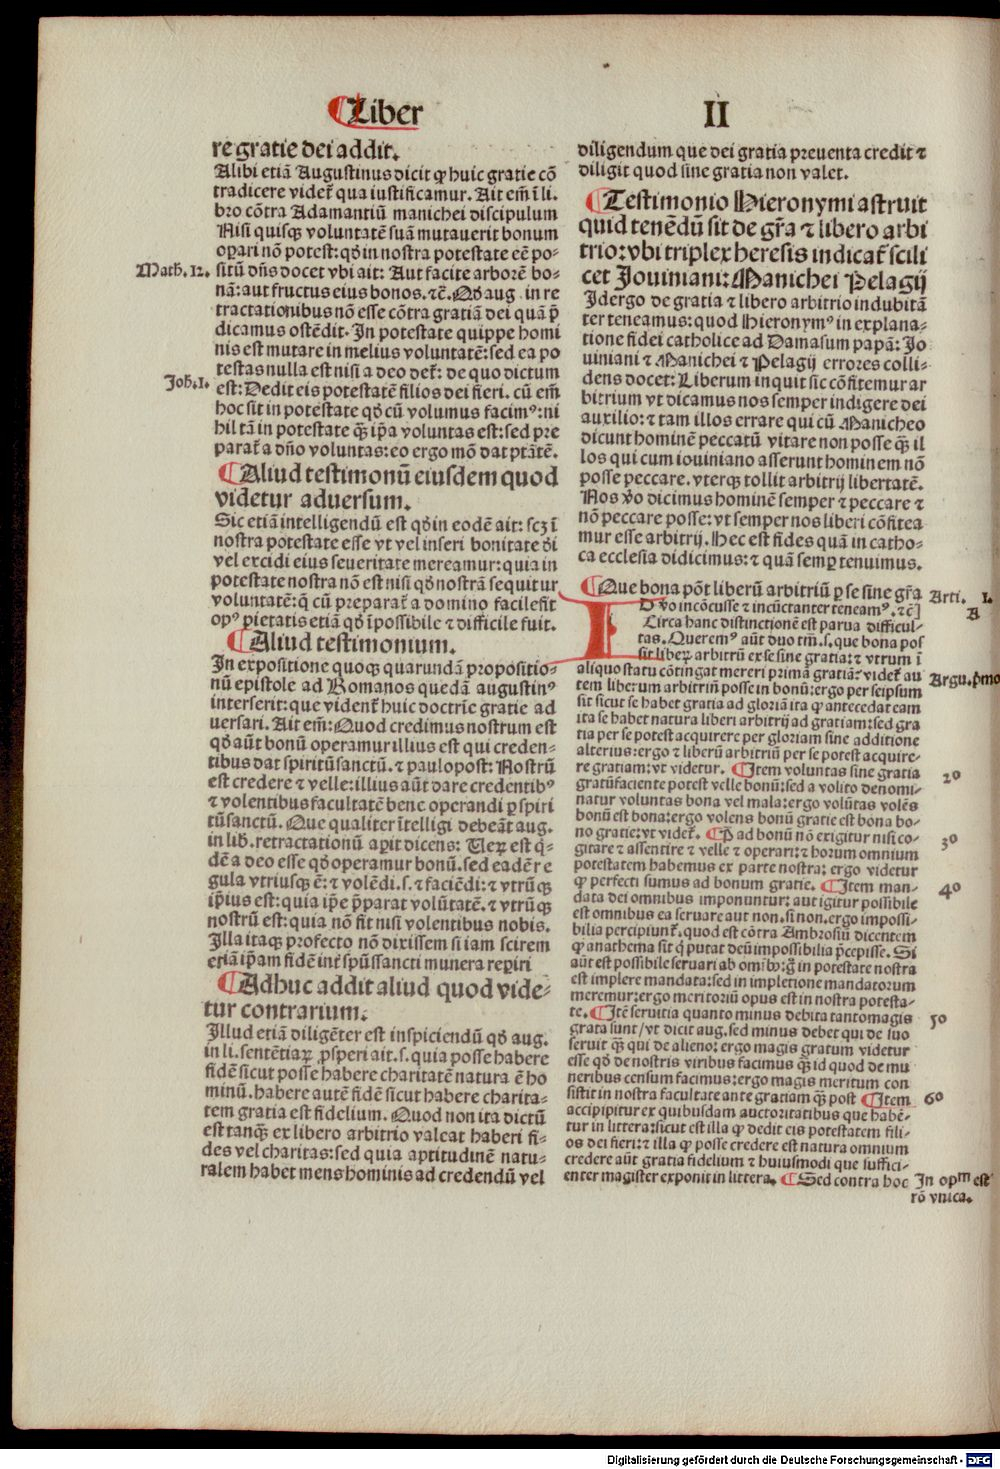 Liber
II
re gratie dei addit.
Alibi etiā Augustinus dicit ꝙ huic gratie cō
tradicere videt̄ qua iustificamur. Ait em̄ ī li.
bro cōtra Adamantiū manichei discipulum
Nisi quisqꝫ voluntatē suā mutauerit bonum
oꝑari nō potest: qd̄ in nostra potestate eē po⸗
Math. 12.
sitū dn̄s docet vbi ait: Aut facite arborē bo⸗
nā: aut fructus eius bonos. ⁊c̄. Qd̄ aug in re
tractationibus nō esse cōtra gratiā dei quā p̄
dicamus ostēdit. In potestate quippe homi
nis est mutare in melius voluntatē: sed ea po
testas nulla est nisi a deo det̄: de quo dictum
Joh. 1.
est: Dedit eis potestatē filios dei fieri. cū em̄
hoc sit in potestate qd̄ cū volumus facimꝰ: ni
hil tā in potestate qꝫ̄ ip̄a voluntas est: sed pre
parat̄ a dn̄o voluntas: eo ergo mō dat ptāte.
Aliud testimonū eiusdem quod
videtur aduersum.
Sic etiā intelligendū est qd̄ in eodē ait: scꝫ ī
nostra potestate esse vt vel inseri bonitate d̄i
vel excidi eius seueritate mereamur: quia in
potestate nostra nō est nisi qd̄ nostrā sequitur
voluntatē: q̄ cū preparat̄ a domino facile fit
opꝰ pietatis etiā qd̄ īpossibile ⁊ difficile fuit.
Aliud testimonium.
In expositione quoqꝫ quarundā propositio⸗
nū epistole ad Romanos quedā augustinꝰ
interserit: que vident̄ huic doctrie gratie ad
uersari. Ait em̄: Quod credimus nostrum est
qd̄ aūt bonū operamur illius est qui creden⸗
tibus dat spiritū sanctū. ⁊ paulo post: Nostrū
est credere ⁊ velle: illius aūt dare credentibꝰ
⁊ volentibus facultatē bene operandi ꝑ spiri
tū sanctū. Que qualiter ītelligi debeāt aug.
in lib. retractationū aꝑit dicens: Ueꝝ est q̄⸗
dē a deo esse qd̄ operamur bonū. sed eadē re
gula vtriusqꝫ ē: ⁊ volēdi .s. ⁊ faciēdi: ⁊ vtrūqꝫ
ip̄ius est: quia ip̄e p̄parat volūtatē. ⁊ vtrūqꝫ
nostrū est: quia nō fit nisi volentibus nobis.
Illa itaqꝫ profecto nō dixissem si iam scirem
etiā ip̄am fidē int̄ sp̄ūssancti munera reꝑiri
Adhuc addit aliud quod vide⸗
tur contrarium.
Illud etiā diligēter est inspiciendū qd̄ aug.
in li. sentētiaꝝ ꝓsperi ait .s. quia posse habere
fidē sicut posse habere charitatē natura ē ho
minū. habere autē fidē sicut habere charita⸗
tem gratia est fidelium. Quod non ita dictū
est tanqꝫ̄ ex libero arbitrio valeat haberi fi⸗
des vel charitas: sed quia aptitudinē natu⸗
ralem habet mens hominis ad credendū vel
diligendum que dei gratia preuenta credit ⁊
diligit quod sine gratia non valet.
Testimonio Hieronymi astruit
quid tenēdū sit de gr̄a ⁊ libero arbi
trio: vbi triplex heresis indicat̄ scili
cet Jouiniani: Manichei Pelagij
Id ergo de gratia ⁊ libero arbitrio indubitā
ter teneamus: quod Hieronymꝰ in explana⸗
tione fidei catholice ad Damasum papā: Jo
uiniani ⁊ Manichei ⁊ Pelagij errores colli⸗
dens docet: Liberum inquit sic cōfitemur ar
bitrium vt dicamus nos semper indigere dei
auxilio: ⁊ tam illos errare qui cū Manicheo
dicunt hominē peccatū vitare non posse qꝫ̄ il
los qui cum iouiniano asserunt hominem nō
posse peccare. vterqꝫ tollit arbitrij libertatē.
Nos v̄o dicimus hominē semper ⁊ peccare ⁊
nō peccare posse: vt semper nos liberi cōfitea
mur esse arbitrij. Hec est fides quā in catho⸗
ca ecclesia didicimus: ⁊ quā semꝑ tenuimus.
Que bona pōt liberū arbitriū ꝑ se sine gr̄a
Arti. 1.
A
ID v̄o incōcusse ⁊ incūctanter teneamꝰ. ⁊c̄]
Circa hanc distinctionē est parua difficul⸗
tas. Queremꝰ aūt duo tm̄ .s. que bona pos
sit liberꝝ arbitrū ex se sine gratia: ⁊ vtrum ī
aliquo statu cōtingat mereri primā gratiā: videt̄ au
Argu. p̄mo
tem liberum arbitriū posse in bonū: ergo per seipsum
sit sicut se habet gratia ad gloriā ita ꝙ antecedat eam
ita se habet natura liberi arbitrij ad gratiam: sed gra
tia per se potest acquirere per gloriam sine additione
alterius: ergo ⁊ liberū arbitriū per se potest acquire⸗
re gratiam: vt videtur. Item voluntas sine gratia
20
gratū faciente potest velle bonū: sed a volito denomi⸗
natur voluntas bona vel mala: ergo volūtas volēs
bonū est bona: ergo volens bonū gratie est bona bo⸗
no gratie: vt videt̄. P̄ ad bonū nō exigitur nisi co⸗
30
gitare ⁊ assentire ⁊ velle ⁊ operari: ⁊ horum omnium
potestatem habemus ex parte nostra: ergo videtur
ꝙ perfecti sumus ad bonum gratie. Item man⸗
40
data dei omnibus imponuntur: aut igitur possibile
est omnibus ea seruare aut non. si non. ergo impossi⸗
bilia percipiunt̄. quod est cōtra Ambrosiū dicentem
ꝙ anathema sit q̄ putat deū impossibilia p̄cepisse. Si
aūt est possibile seruari ab om̄ibꝰ: g̊ in potestate nostra
est implere mandata: sed in impletione mandatorum
meremur: ergo meritoriū opus est in nostra potesta⸗
te. Itē seruitia quanto minus debita tanto magis
50
grata sunt/ vt dicit aug. sed minus debet qui de suo
seruit qꝫ̄ qui de alieno: ergo magis gratum videtur
esse qd̄ de nostris viribus facimus qꝫ̄ id quod de mu
neribus censum facimus: ergo magis meritum con
sistit in nostra facultate ante gratiam qꝫ̄ post Item
60
accipipitur ex quibusdam auctoritatibus que habē⸗
tur in littera: sicut est illa ꝙ dedit eis potestatem fili⸗
os dei fieri: ⁊ illa ꝙ posse credere est natura omnium
credere aūt gratia fidelium ⁊ huiusmodi que suffici⸗
enter magister exponit in littera. Sed contra hoc
In opᵐ est
rō vnica.
Digitalisierung gefördert durch die Deutsche Forschungsgemeinschaft - DFG